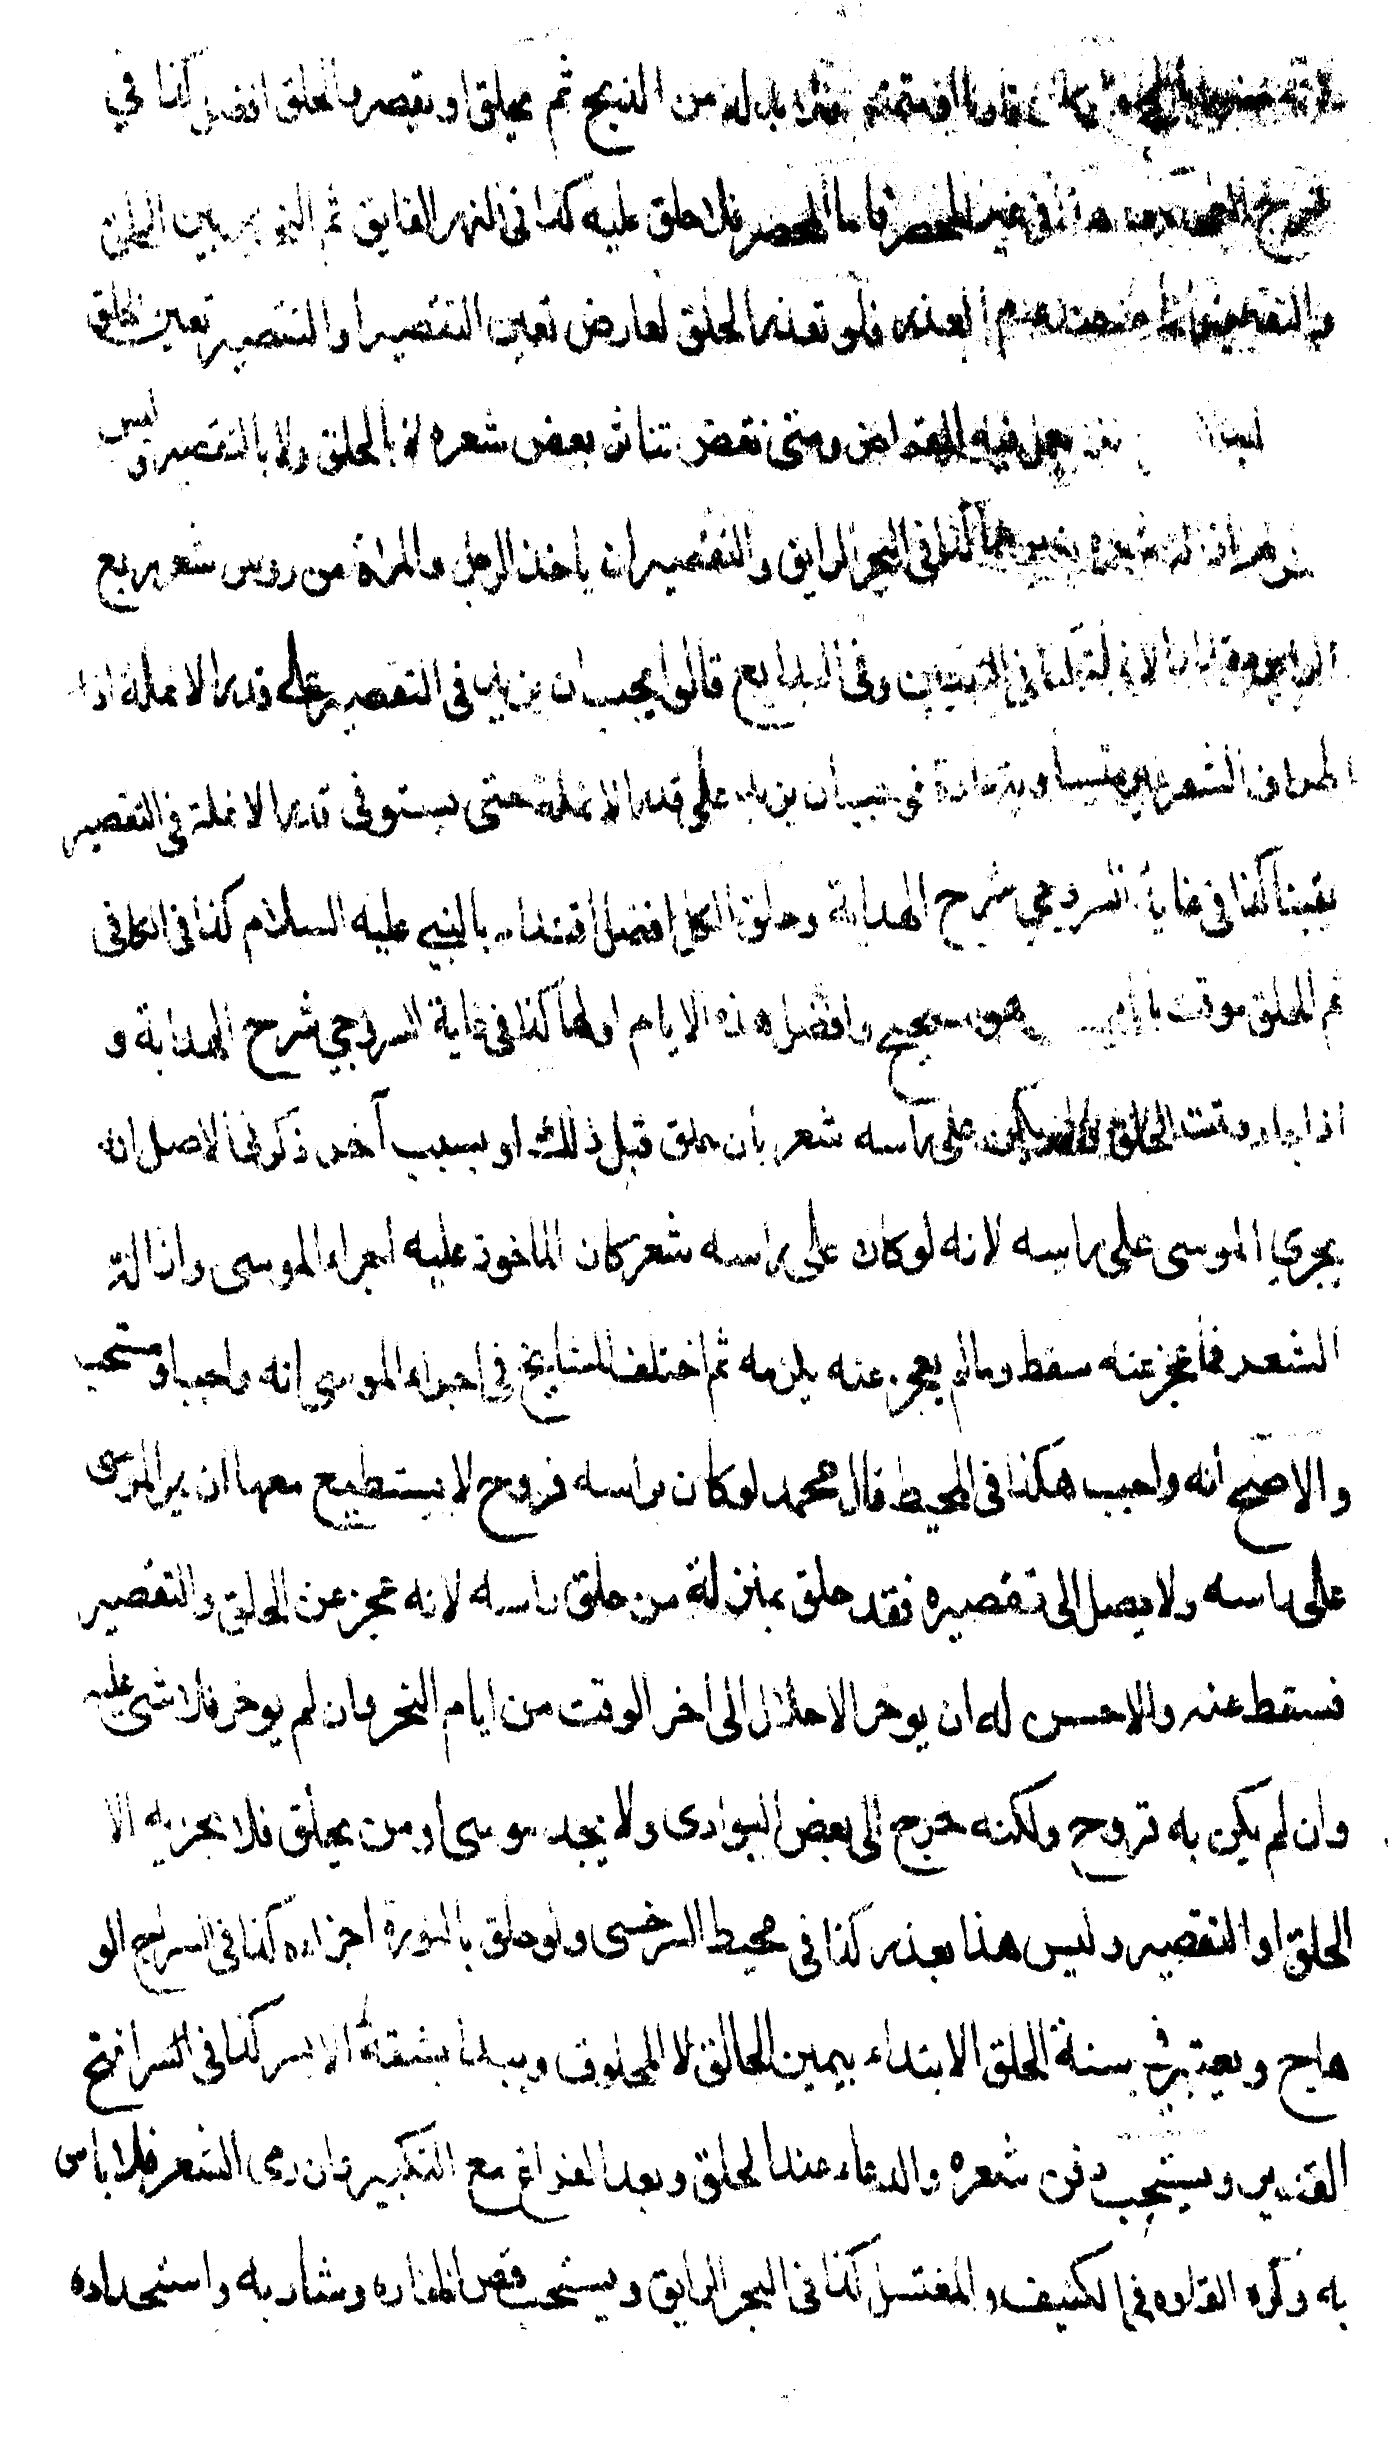 من الذبح ثم يحلق او يقصر والحلق افضل كذا في
في غير المحصر فاما المحصر فلا حلق عليه كذا في النهر الفايق ثم التخيير بين الحلق
العذر فلو تعذر الحلق لعارض تعين التقصير او التقصير تعين الحلق
ومتى نقض تناثر بعض شعره لا بالحلق ولا بالتقصير وليس
كذا في البحر الرايق والتقصير ان ياخذ الرجل والمراة من روس شعر ربع
الراس كذا في التبيين وفي البدايع قالوا يجب ان يزيد في التقصير على قدر الانملة اذا
اطراف الشعر غير متساوية عادة فوجب ان يزيد على قدر الانملة حتى يستوفى قدر الانملة في التقصير
يقينا كذا في غاية السروجي شرح الهداية وحلق الكل افضل اقتداء بالنبي عليه السلام كذا في الكافي
ثم الحلق موقت هو صحيح وافضل هذه الايام اولها كذا في غاية السروجي شرح الهداية و
اذا جاء وقت الحلق ولم يكن على راسه شعر بان حلق قبل ذلك او بسبب آخر ذكر في الاصل انه
يجري الموسى على راسه لانه لو كان على راسه شعر كان الماخوذ عليه اجراء الموسى وازالة
الشعر فما عجز عنه سقط وما لم يعجز عنه يلزمه ثم اختلف المشايخ في اجراء الموسى انه واجب او مستحب
والاصح انه واجب هكذا في المحيط قال محمد لو كان براسه قروح لا يستطيع معها ان يمر الموسى
على راسه ولا يصل الى تقصيره فقد حلق بمنزلة من حلق راسه لانه عجز عن الحلق والتقصير
فسقط عنه والاحسن له ان يوخر الاحلال الى اخر الوقت من ايام النحر وان لم يوخر فلا شى عليه
وان لم يكن به قروح ولكنه خرج الى بعض البوادى ولا يجد موسى او من يحلق فلا يجزيه الا
الحلق او التقصير وليس هذا بعذر كذا في محيط السرخسى ولو حلق بالنورة اجزاه كذا في السراج الو
هاج ويعتبر في سنة الحلق الابتداء بيمين الحالق لا المحلوق ويبدا بشقه الايسر كذا في السرا فتح
القدير ويستحب دفن شعره والدعاء عند الحلق وبعد الفراغ مع التكبير وان رمى الشعر فلا باس
به وكره القاوه في الكنيف والمغتسل كذا في البحر الرايق ويستحب قص اظفاره وشاربه واستحداده